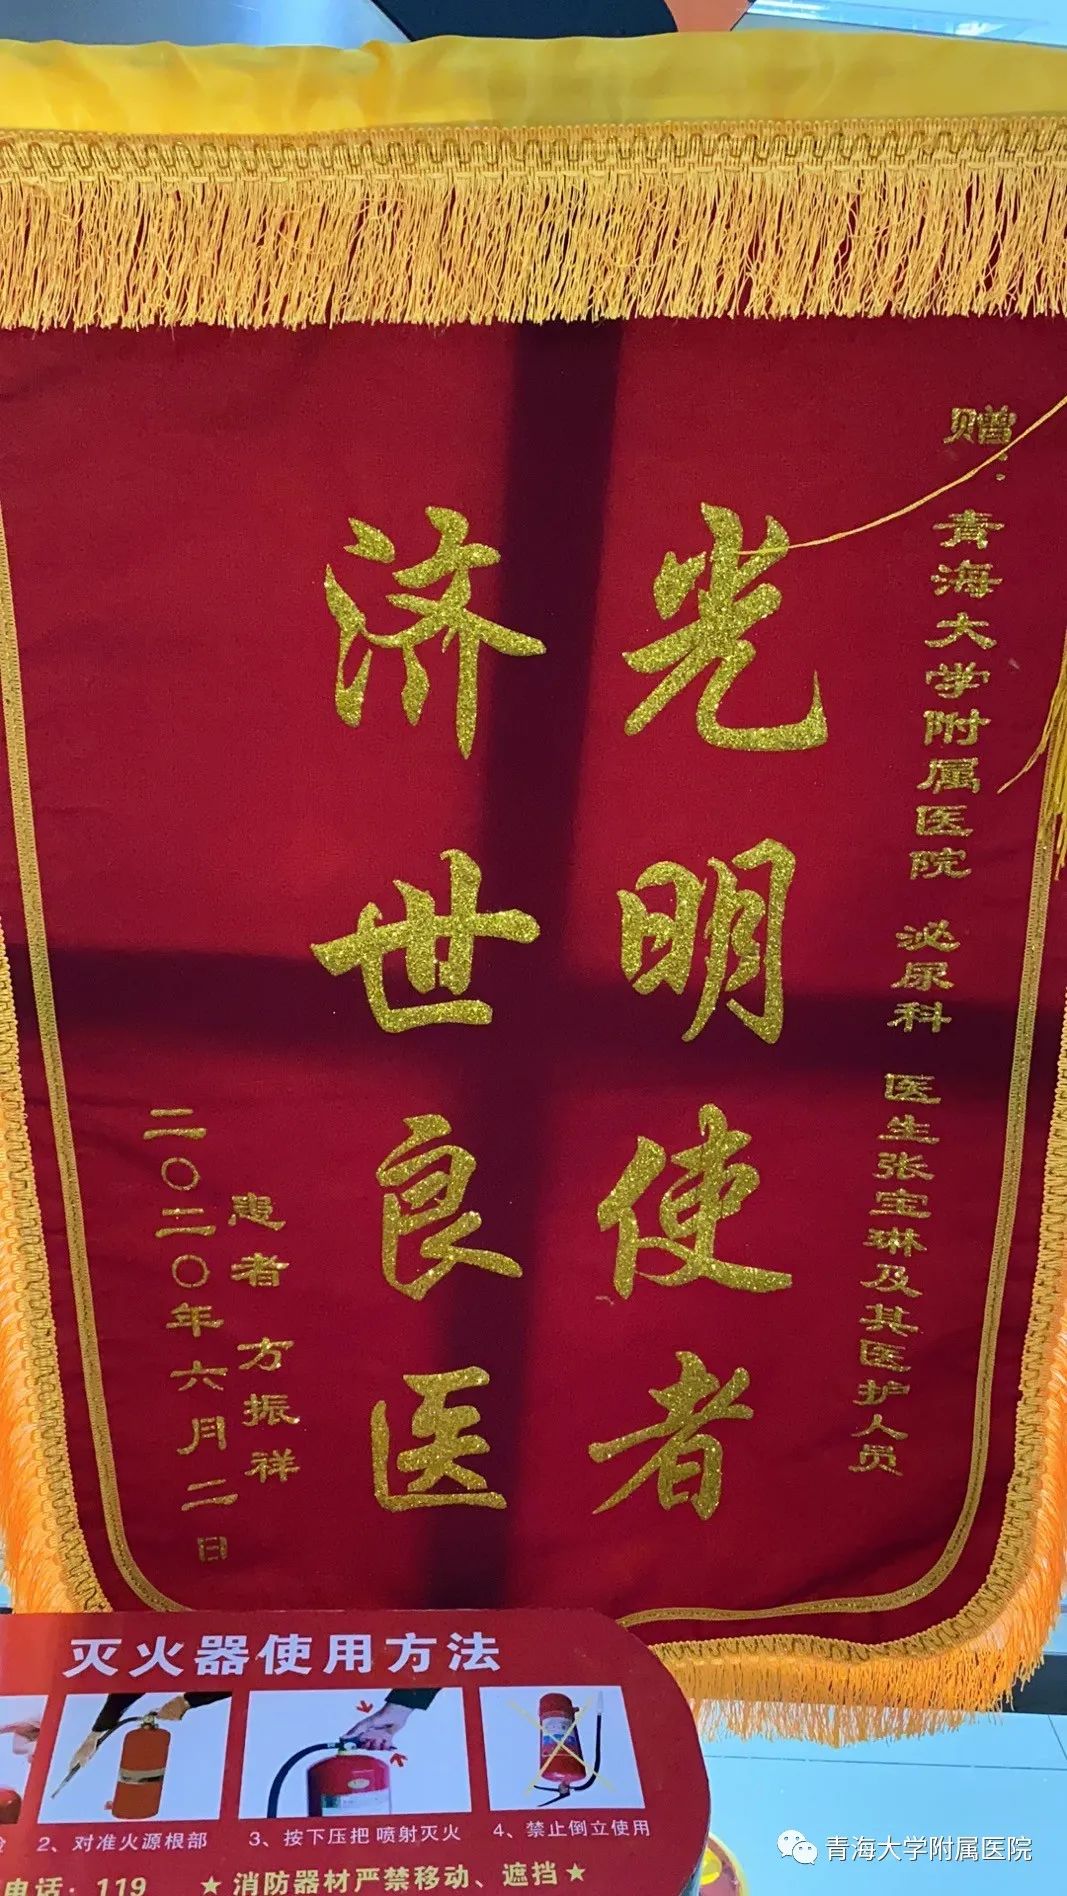 赠：青海大学附属医院 泌尿科 医生张宝琳及其医护人员
光明使者
济世良医
患者 方振祥
二〇二〇年六月二日
灭火器使用方法
2、对准火源根部
3、按下压把 喷射灭火
4、禁止倒立使用
电话：119 ★消防器材严禁移动、遮挡★
青海大学附属医院